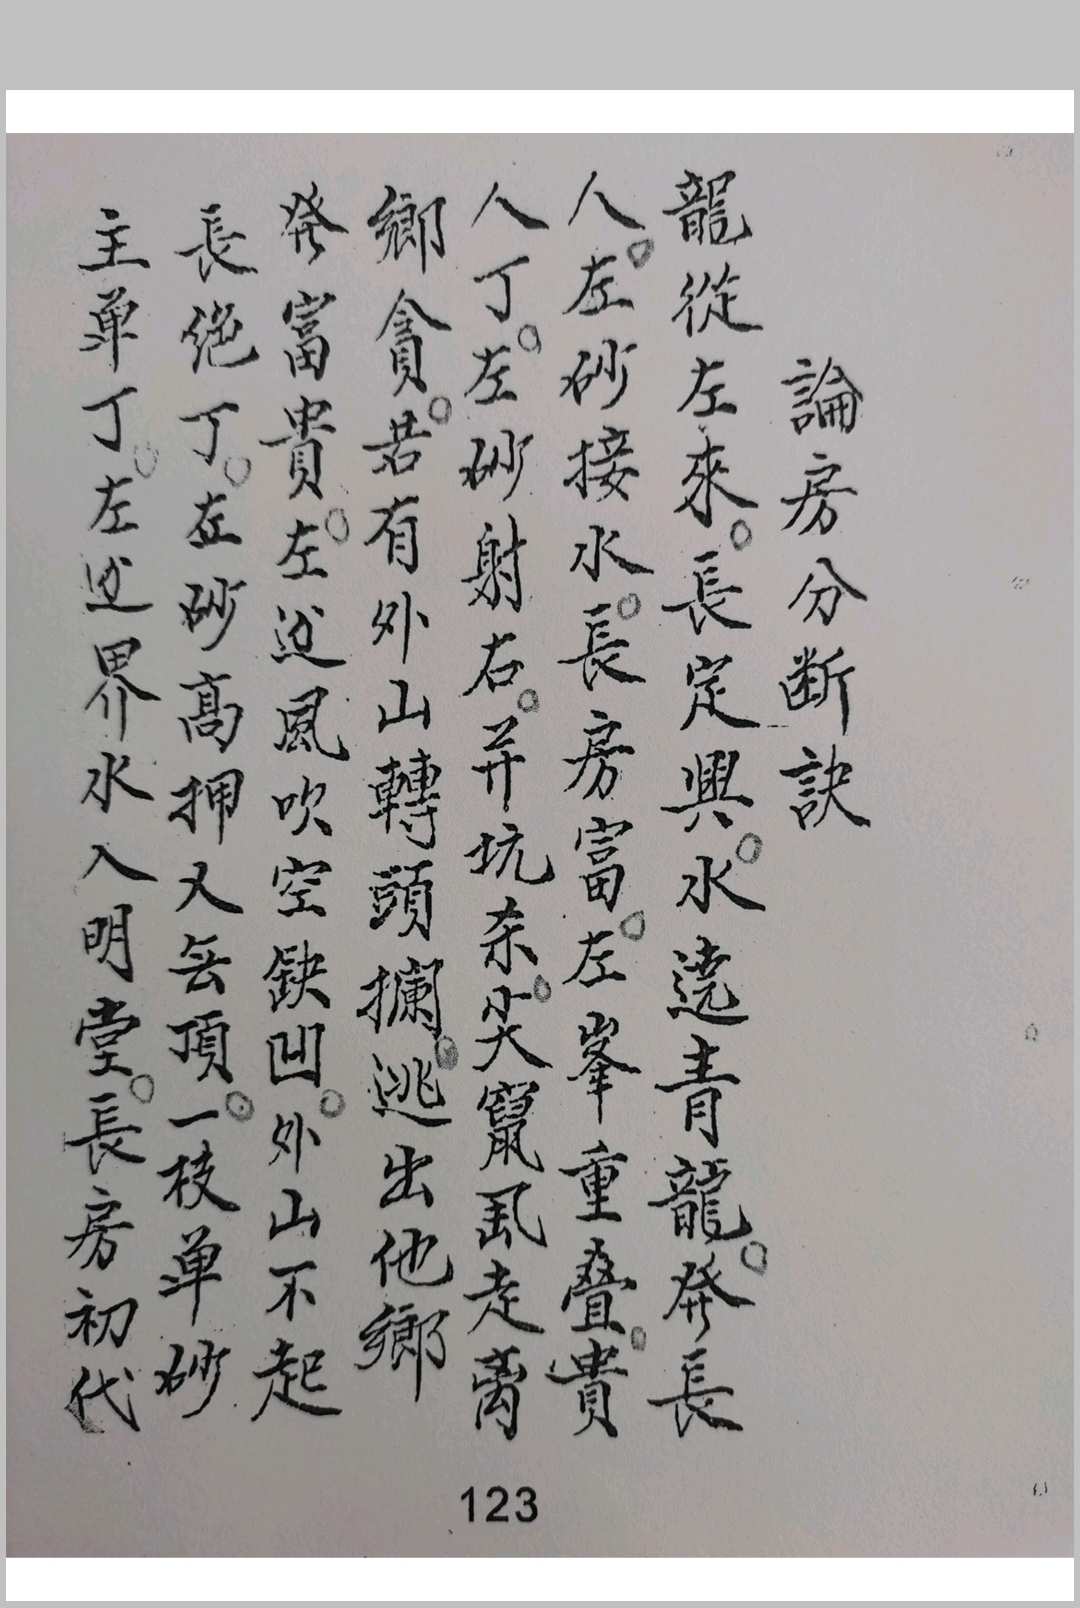 論房分断訣
龍從左來。長定興。水遶青龍。發長
人。左砂接水。長房富。左峯重叠。貴
人丁。左砂射右。并坑杀。尖竄風走离
鄉貪。若有外山轉頭攔。逃出他鄉
發富貴。左边風吹空缺凹。外山不起
長绝丁。左砂高押又無頂。一枝单砂
主单丁。左边界水入明堂。長房初代
123